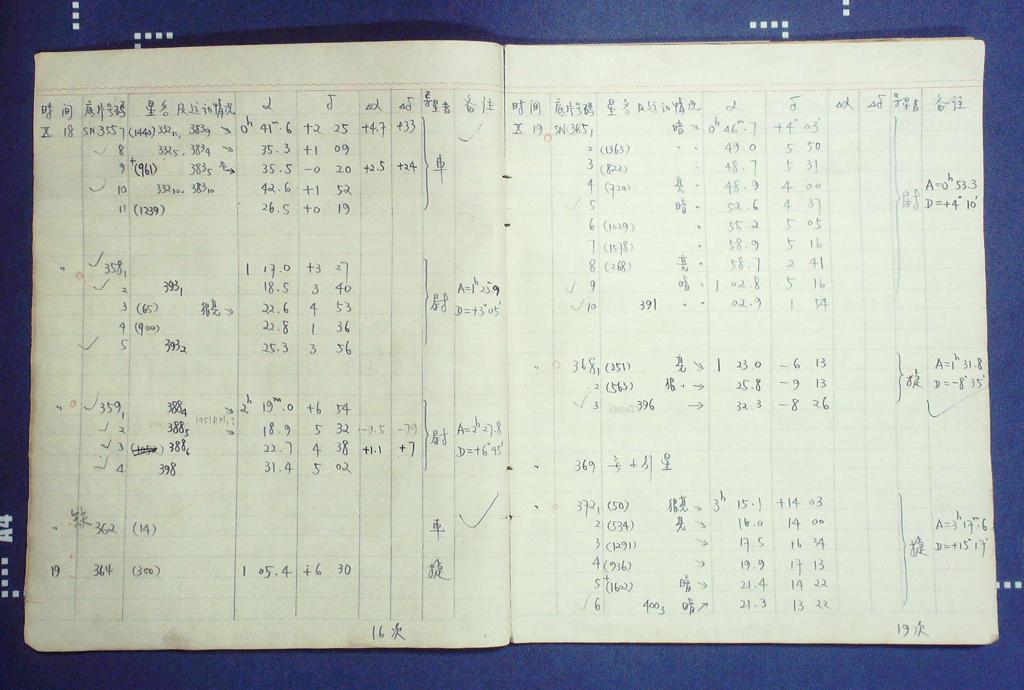 时间 底片号码 星名及运动情况 α δ Δα Δδ 寻星者 备注
X 18 SN3557 (1440) 332₁₁, 383₉ → 0ʰ 41ᵐ.6 +2 25 +4.7 +33
8 332₅, 383₄ → 35.3 +1 09
9 +(961) 383₅ → 35.5 -0 20 +2.5 +24 車
10 332₁₀, 383₁₀ 42.6 +1 52
11 (1239) 26.5 +0 19
" 358₁ 1 17.0 +3 27
2 393₁ 18.5 3 40 A=1ʰ25ᵐ9
3 (65) 很亮 → 22.6 4 53 尉 D=+3°05'
4 (900) 22.8 1 36
5 393₂ 25.3 3 56
" 359₁ 388₄ → 2ʰ 19ᵐ.0 +6 54
2 388₅ → 18.9 5 32 -79 A=2ʰ27.8
3 388₆ 22.7 4 38 +1.1 +7 尉
4 398 31.4 5 02
" 362 (14) 車
19 364 (300) 1 05.4 +6 30 捷
16次
时间 底片号码 星名及运动情况 α δ Δα Δδ 寻星者 备注
X 19 SN365₁ 暗 → 0ʰ 46ᵐ.7 +4° 03'
2 (1363) " 49.0 5 50
3 (822) " 48.7 5 31
4 (720) 亮 " 48.9 4 00 A=0ʰ53.3
5 暗 " 52.6 4 37 尉 D=+4°10'
6 (1029) " 55.2 5 05
7 (1578) " 58.9 5 16
8 (268) 亮 " 58.7 2 41
9 暗 " 1 02.8 5 16
10 391 " 02.9 1 54
" 368₁ (351) 亮 → 1 23.0 -6 13 A=1ʰ31.8
2 (563) 很 " → 25.8 -9 13 捷 D=-8°35'
3 396 → 32.3 -8 26
" 369 无小行星
" 372₁ (50) 很亮 → 3ʰ 15.1 +14 03
2 (534) 亮 → 16.0 14 00 A=3ʰ17ᵐ.6
3 (1291) → 17.5 16 34 捷 D=+15°17'
4 (936) → 19.9 17 13
5 +(1602) 暗 → 21.4 14 22
6 400₃ 暗 ↗ 21.3 13 22
19次